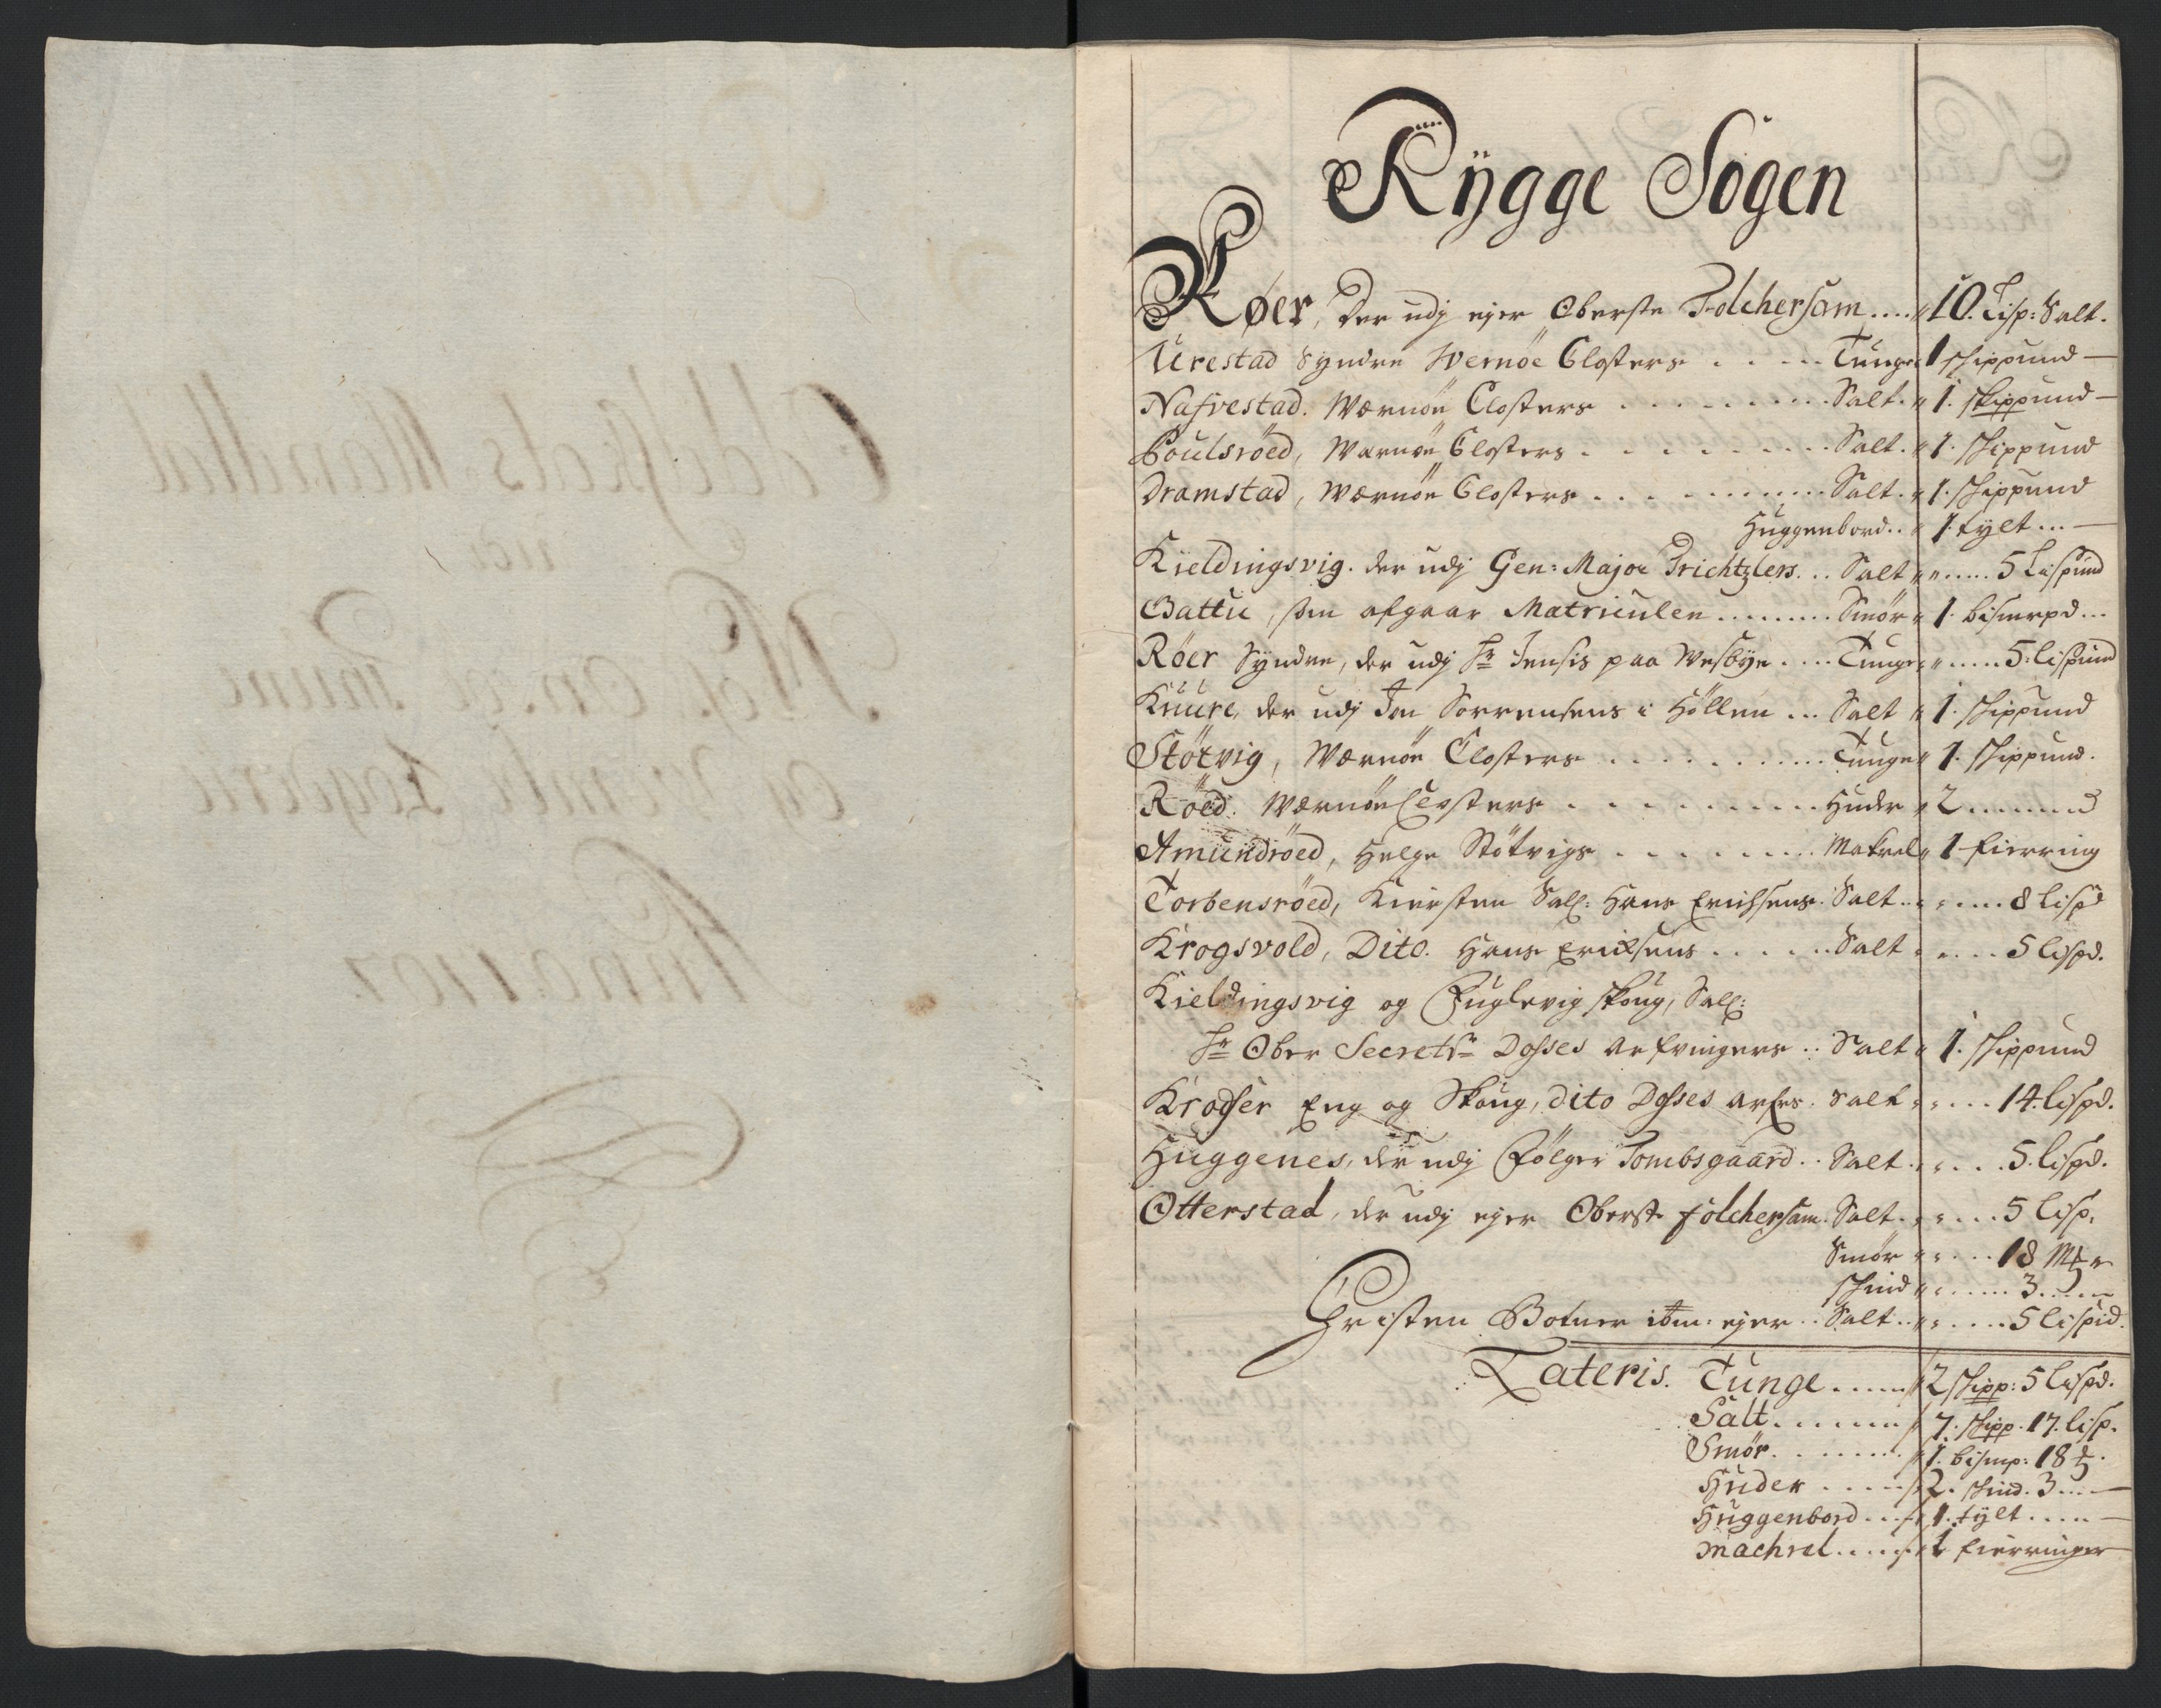 Rÿgge Sogen
Røer, der udj ejer Oberste Folchersam .... 10. Lisp: Salt.
Urestad Syndre Wernöe Closters . . . . Tunge 1 skippund
Nafvestad. Wærnöe Closters . . . . Salt. 1. skippund
Poulsröed, Wærnöe Closters . . . . Salt. 1. skippund
Dramstad, Wærnöe Closters . . . . Salt. 1. skippund
Huggenbord .. 1. tylt ...
Kieldingsvig. der udj Gen: Major Trichtzlers. .. Salt ..... 5 Lispund
Battu, som afgaar Matriculen ......... Smör 1. bismrpd ...
Röer Syndre, der udj Hr Jensis paa Wesbye .... Tunge ..... 5. lispund
Knure, der udj Jon Sörrensens i Höllen ... Salt 1. skippund
Støtvig, Wærnöe Closters . . . . Tunge 1. skippund.
Röed. Wærnöe Closters . . . . Huder 2 .......
Amundröed, Helge Stötvigs . . . . Makrel 1 fierring
Torbensröed, Kiersten Sal: Hans Erichsens. Salt .... 8 lispd
Krogsvold, Dito. Hans Erichsens . . . . Salt .... 5 lispd.
Kieldingsvig og Fuglevig skoug, Sal:
Hr Ober Secrets Dosses Arfvingers .. Salt 1. skippund
Krodser Eng og Skoug, dito Dosses Arfes. Salt .... 14. lispd.
Huggenes, der udj Fölger Tombsgaard .. Salt .... 5. lispd.
Otterstad, der udj ejer Oberste folchersam. Salt. .... 5 lisp.
Smör .... 18 Mkr
skind ...... 3 .....
Christen Botner item ejer .. Salt .. .... 5 lispd.
Lateris. Tunge ..... 2 skipp: 5 lispd.
Salt ....... 7. skipp. 17. lisp.
Smør. ....... 1. bismp: 18 ℔.
Huder ..... 2. skind. 3 ....
Huggenbord .... 1. tylt .....
machrel ..... 1 fierringer